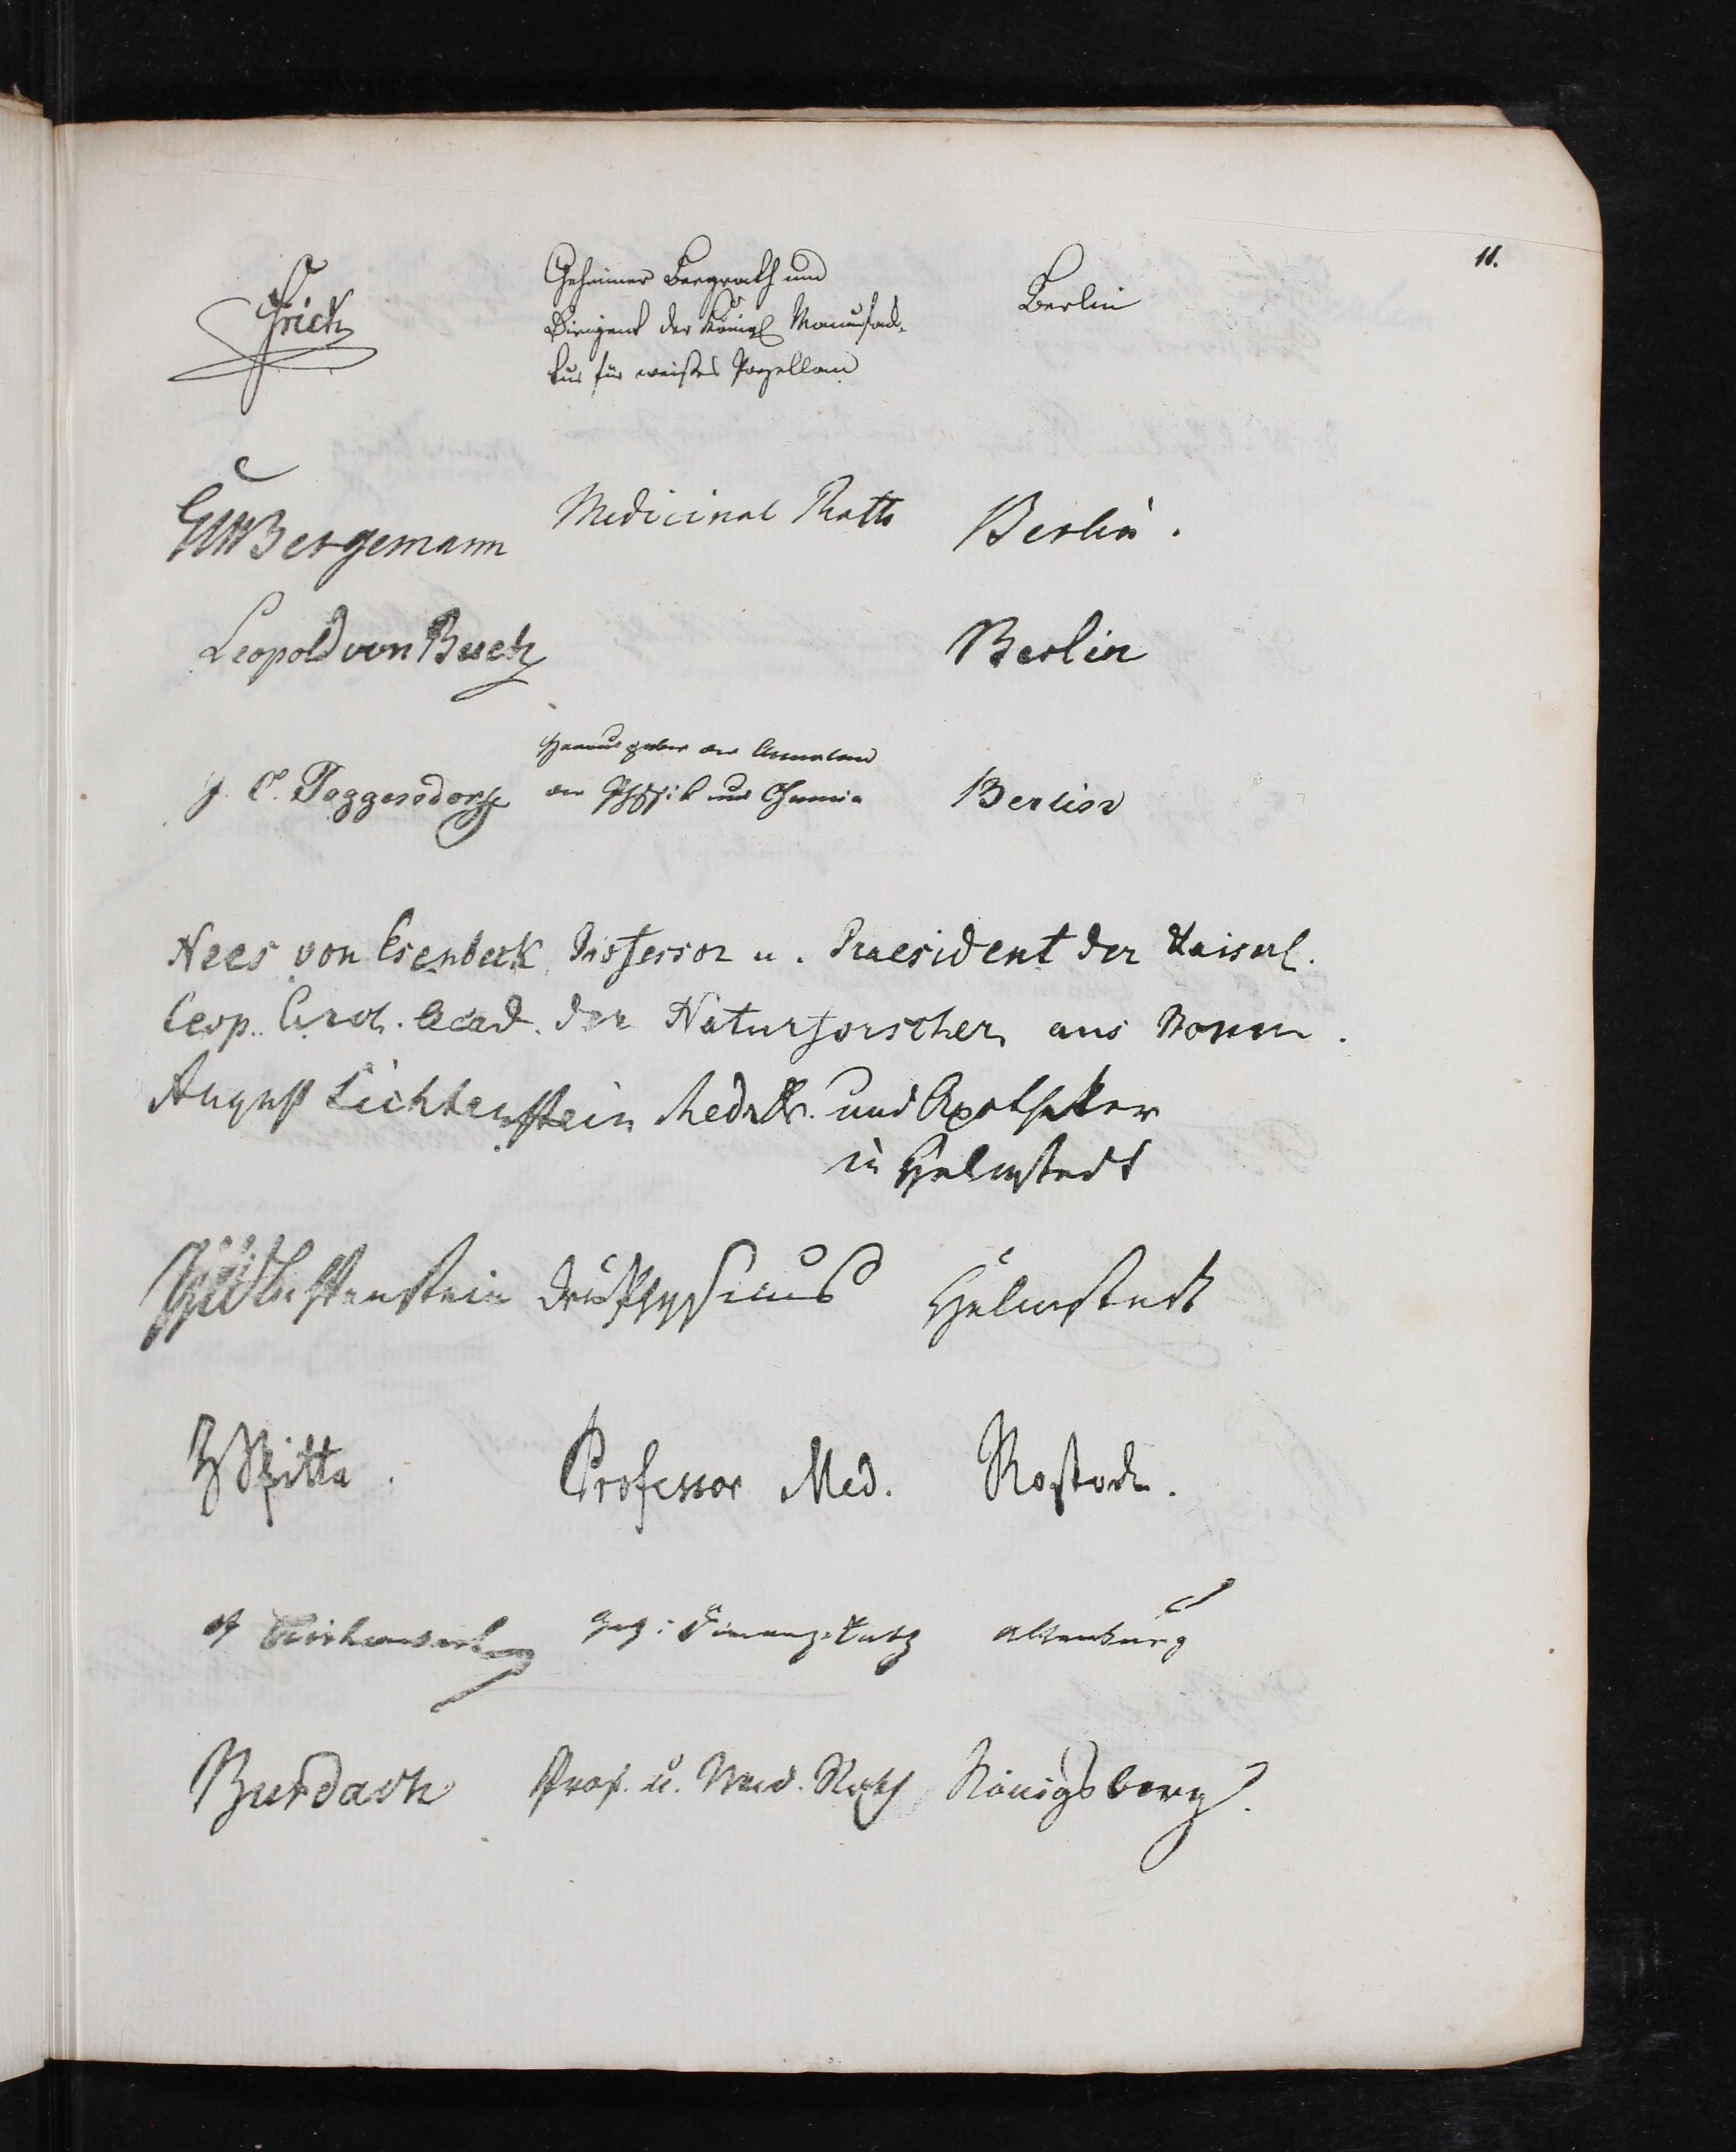 11.
Frick Geheimer Bergrath und
Dirigent der Königl Manufac-
tur für weißes Porzellan Berlin
Bergemann Medicinal Rath Berlin.
Leopold von Buch Berlin
Herausgeber der Annalen
J. C. Poggendorff der Physik und Chemie Berlin
Nees von Esenbeck, Professor u. Praesident der Kaiserl.
Leop. Carol. Acad. der Naturforscher, aus Bonn.
August Lichtenstein Med. Dr. und Apotheker
in Helmstedt
Lichtenstein Physicus Helmstedt
Spitta. Professor Med. Rostock.
Altenburg
Burdach Prof. u. Med. Rath Königsberg.